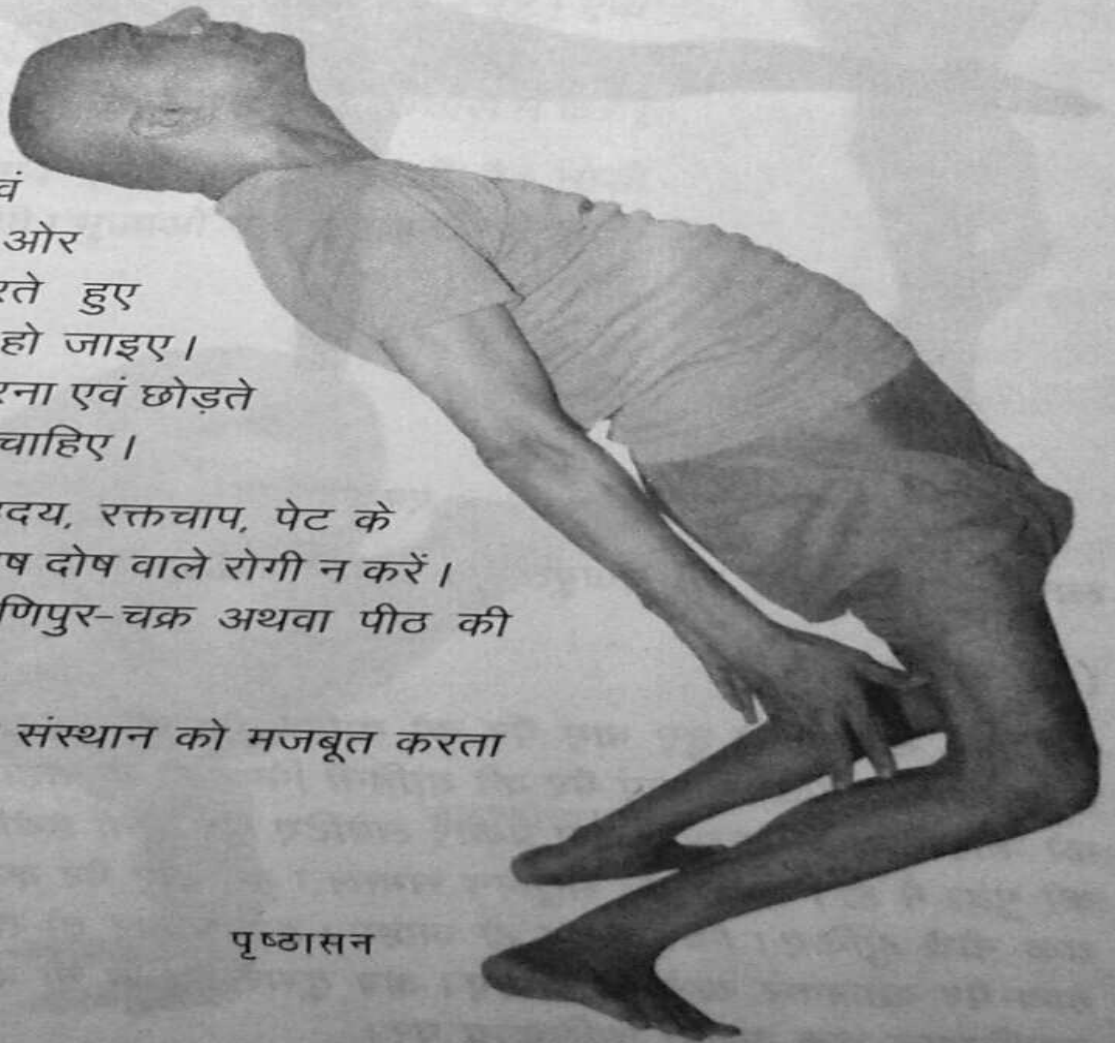 वं
ओर
रते हुए
हो जाइए।
रना एवं छोड़ते
चाहिए।
दय, रक्तचाप, पेट के
ष दोष वाले रोगी न करें।
णिपुर-चक्र अथवा पीठ की
संस्थान को मजबूत करता
पृष्ठासन